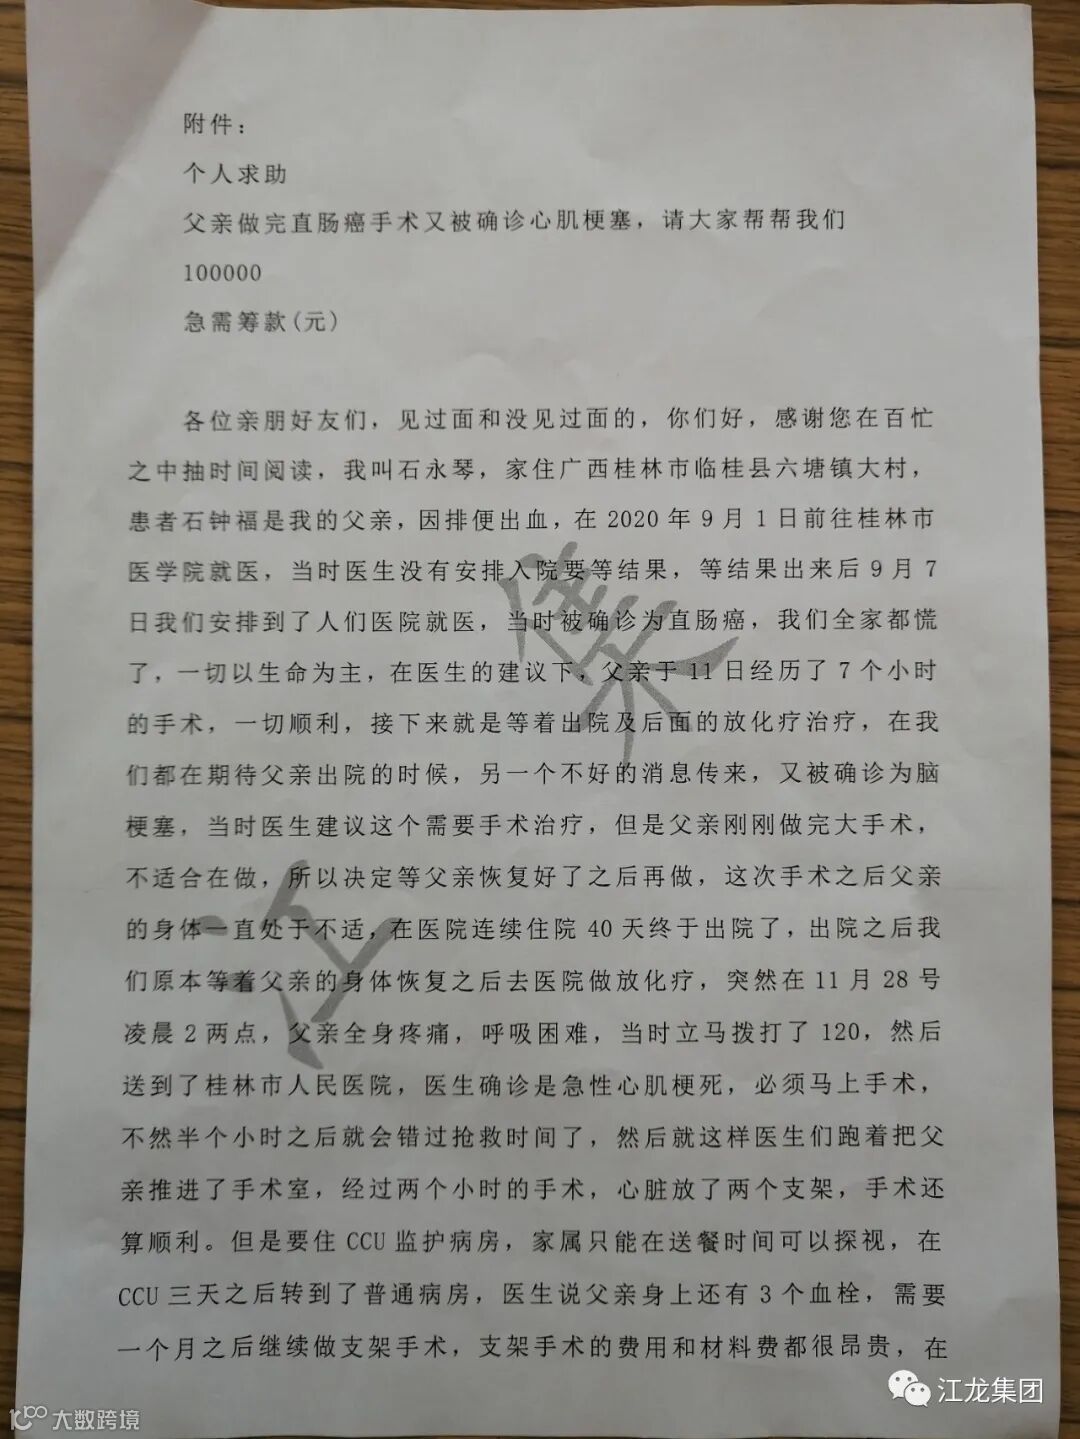 附件：
个人求助
父亲做完直肠癌手术又被确诊心肌梗塞，请大家帮帮我们
100000
急需筹款(元)
各位亲朋好友们，见过面和没见过面的，你们好，感谢您在百忙
之中抽时间阅读，我叫石永琴，家住广西桂林市临桂县六塘镇大村，
患者石钟福是我的父亲，因排便出血，在 2020 年 9 月 1 日前往桂林市
医学院就医，当时医生没有安排入院要等结果，等结果出来后 9 月 7
日我们安排到了人们医院就医，当时被确诊为直肠癌，我们全家都慌
了，一切以生命为主，在医生的建议下，父亲于 11 日经历了 7 个小时
的手术，一切顺利，接下来就是等着出院及后面的放化疗治疗，在我
们都在期待父亲出院的时候，另一个不好的消息传来，又被确诊为脑
梗塞，当时医生建议这个需要手术治疗，但是父亲刚刚做完大手术，
不适合在做，所以决定等父亲恢复好了之后再做，这次手术之后父亲
的身体一直处于不适，在医院连续住院 40 天终于出院了，出院之后我
们原本等着父亲的身体恢复之后去医院做放化疗，突然在 11 月 28 号
凌晨 2 两点，父亲全身疼痛，呼吸困难，当时立马拨打了 120，然后
送到了桂林市人民医院，医生确诊是急性心肌梗死，必须马上手术，
不然半个小时之后就会错过抢救时间了，然后就这样医生们跑着把父
亲推进了手术室，经过两个小时的手术，心脏放了两个支架，手术还
算顺利。但是要住 CCU 监护病房，家属只能在送餐时间可以探视，在
CCU 三天之后转到了普通病房，医生说父亲身上还有 3 个血栓，需要
一个月之后继续做支架手术，支架手术的费用和材料费都很昂贵，在
江龙集团
大数跨境